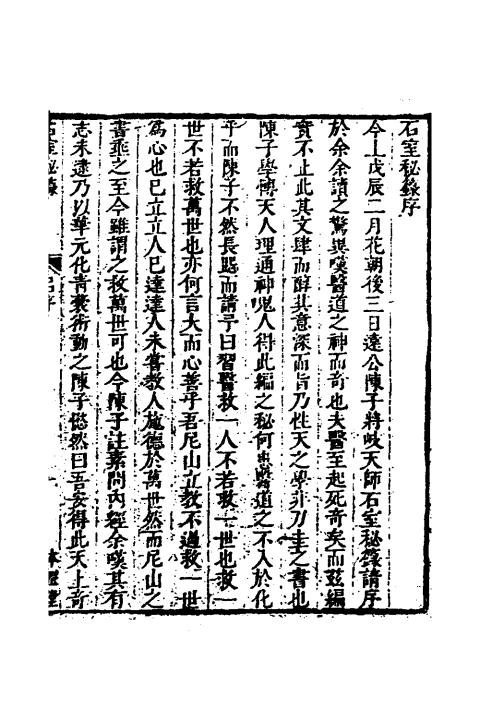 石室秘籙序
今上戊辰二月花朝後三日遠公陳子將岐天師石室秘籙請序
於余余讀之驚異嘆醫道之神而奇也夫醫至起死奇矣而玆編
實不止此其文肆而醇其意深而旨乃性天之學非刀圭之書也
陳子學博天人理通神鬼人得此編之秘何患醫道之不入於化
乎而陳子不然長跽而請予曰習醫救一人不若救一世也救一
世不若救萬世也亦何言大而心善乎吾尼山立教不過救一世
為心也已立立人已達達人未嘗教人施德於萬世然而尼山之
書垂之至今雖謂之救萬世可也今陳子註素問內經余嘆其有
志未逮乃以華元化青囊術動之陳子愀然曰吾安得此天上奇
石室秘籙 序